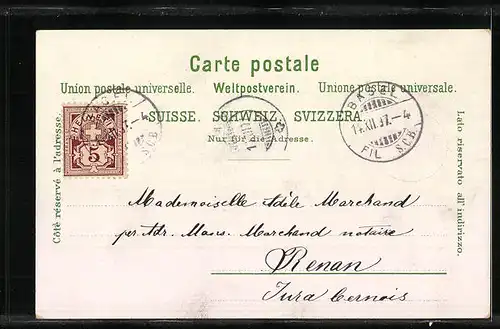 Carte postale
Union postale universelle. Weltpostverein. Unione postale universale.
SUISSE. SCHWEIZ. SVIZZERA.
Nur für die Adresse.
Côté réservé à l'adresse.
Lato riservato all'indirizzo.
HELVETIA
5
BASEL
XII.97.-4
FIL S.C.B.
Mademoiselle Adèle Marchand
pr. Adr. Mons. Marchand notaire
Renan
Jura bernois